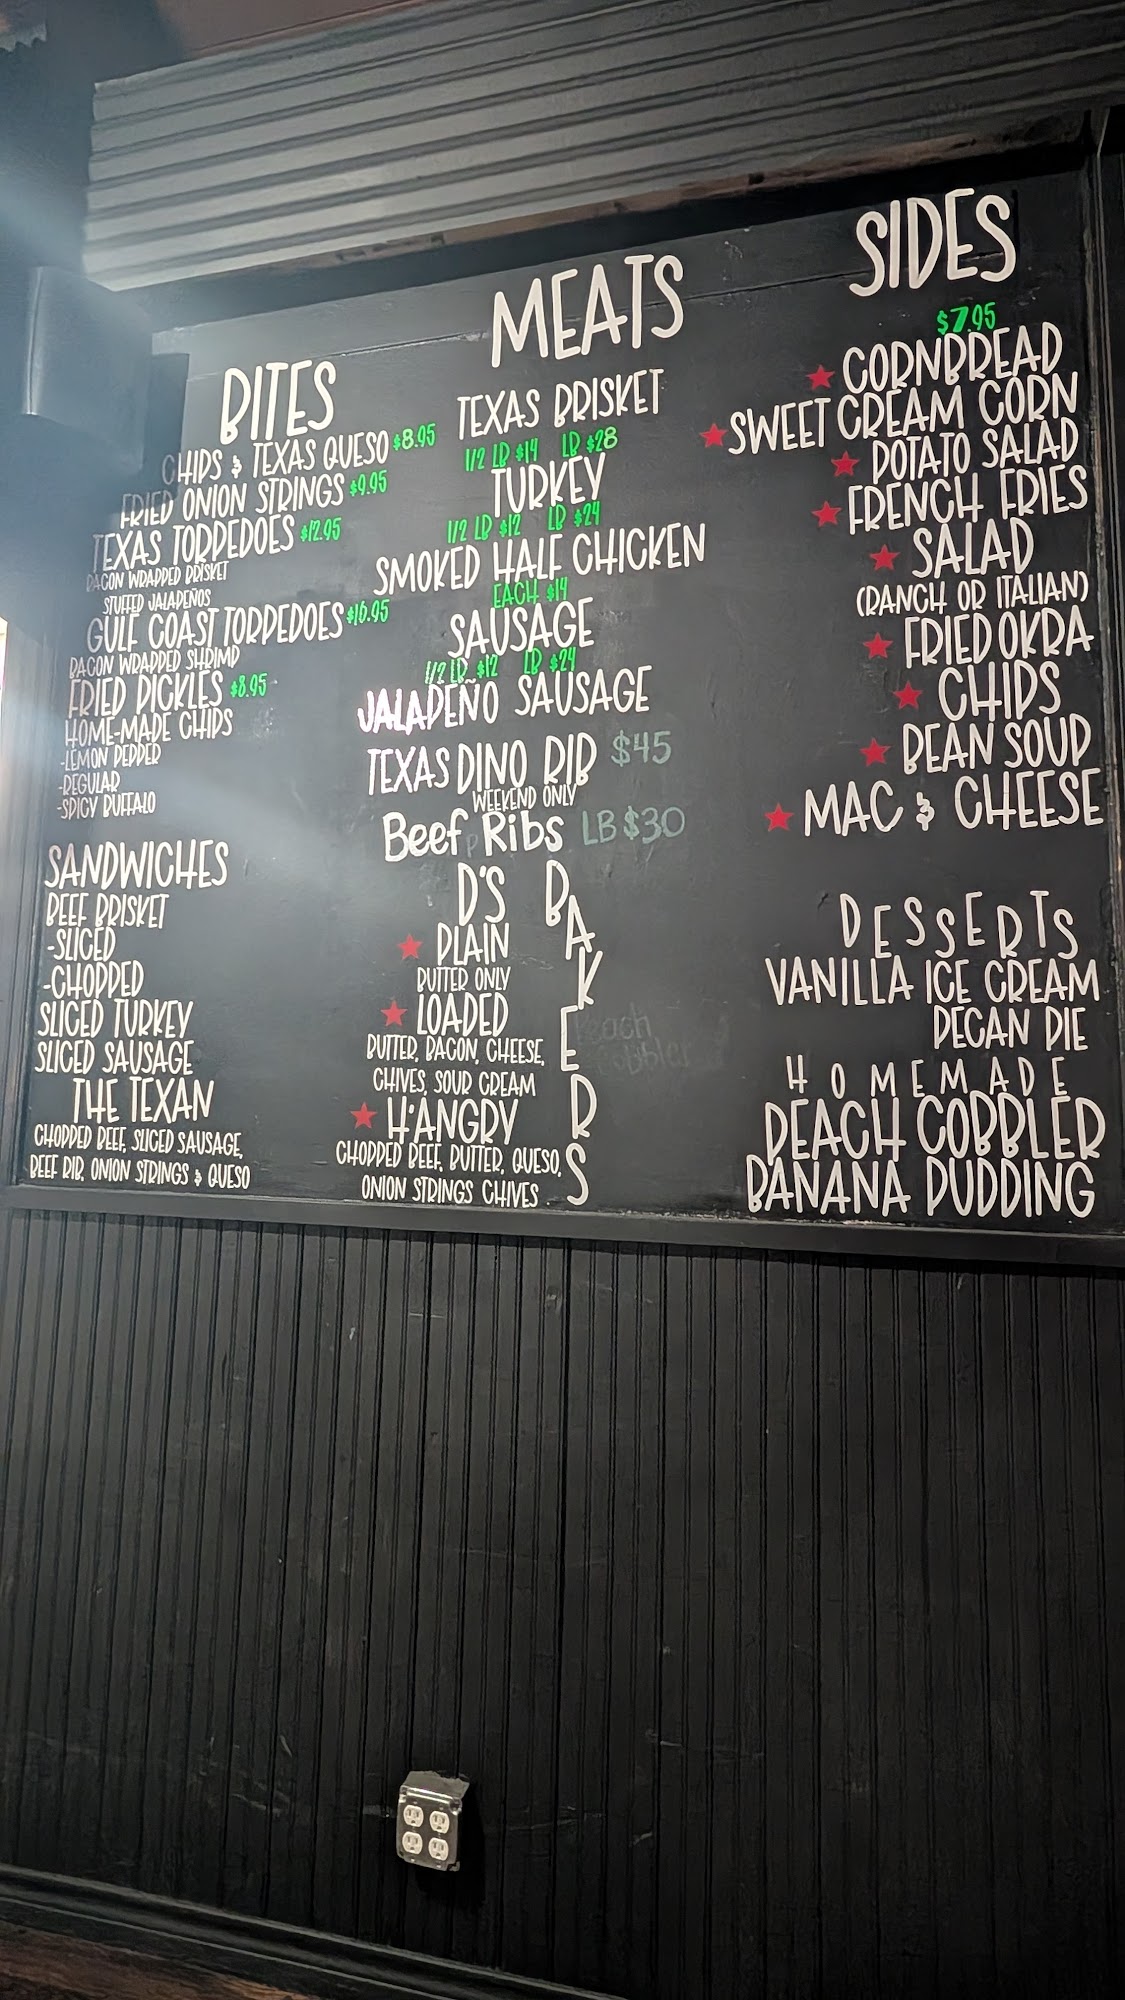 BITES
CHIPS & TEXAS QUESO $8.95
FRIED ONION STRINGS $9.95
TEXAS TORPEDOES $12.95
BACON WRAPPED BRISKET
STUFFED JALAPEÑOS
GULF COAST TORPEDOES $16.95
BACON WRAPPED SHRIMP
FRIED PICKLES $8.95
HOME-MADE CHIPS
-LEMON PEPPER
-REGULAR
-SPICY BUFFALO
SANDWICHES
BEEF BRISKET
-SLICED
-CHOPPED
SLICED TURKEY
SLICED SAUSAGE
THE TEXAN
CHOPPED BEEF, SLICED SAUSAGE,
BEEF RIB, ONION STRINGS & QUESO
MEATS
TEXAS BRISKET
1/2 LB $14 LB $28
TURKEY
1/2 LB $12 LB $24
SMOKED HALF CHICKEN
EACH $14
SAUSAGE
1/2 LB $12 LB $24
JALAPEÑO SAUSAGE
TEXAS DINO RIB $45
WEEKEND ONLY
Beef Ribs LB $30
D'S BAKERS
PLAIN
BUTTER ONLY
LOADED
BUTTER, BACON, CHEESE,
CHIVES, SOUR CREAM
H'ANGRY
CHOPPED BEEF, BUTTER, QUESO,
ONION STRINGS CHIVES
Peach
Cobbler
SIDES
$7.95
CORNBREAD
SWEET CREAM CORN
POTATO SALAD
FRENCH FRIES
SALAD
(RANCH OR ITALIAN)
FRIED OKRA
CHIPS
BEAN SOUP
MAC & CHEESE
DESSERTS
VANILLA ICE CREAM
PECAN PIE
HOMEMADE
PEACH COBBLER
BANANA PUDDING